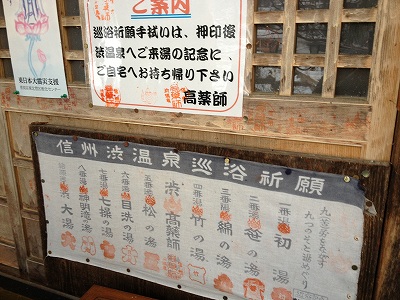 ご案内
巡浴祈願手拭いは、押印後
渋温泉へご来湯の記念に、
ご自宅へお持ち帰り下さい
高薬師
東日本大震災支援
信州渋温泉巡浴祈願
一番湯 初の湯
二番湯 笹の湯
三番湯 綿の湯
四番湯 竹の湯
五番湯 松の湯
六番湯 目洗の湯
七番湯 七操の湯
八番湯 神明滝の湯
渋大湯
渋高薬師